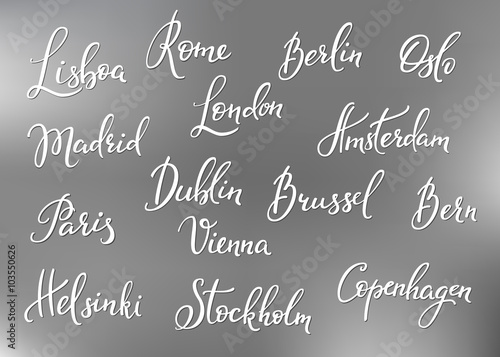 Lisboa Rome Berlin Oslo
London
Madrid Amsterdam
Dublin Brussel Bern
Paris Vienna
Helsinki Stockholm Copenhagen
Adobe Stock | #103550626